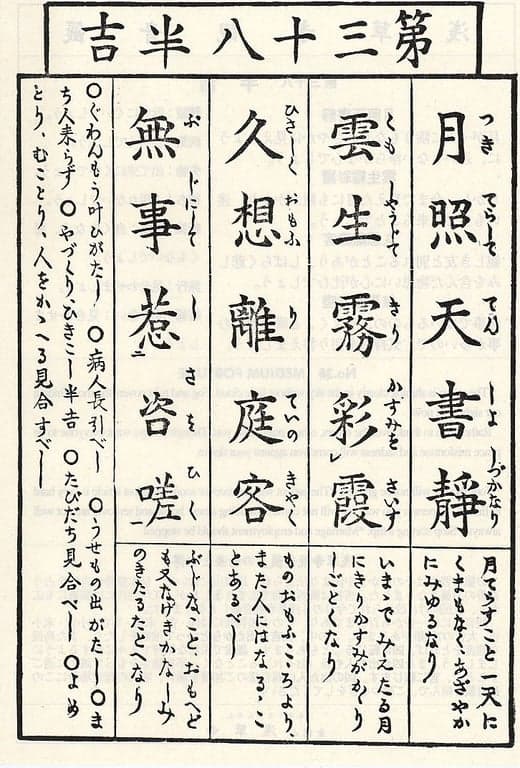 第三十八半吉
月照天書靜
つき てらして てん しよ しづかなり
月てりすこし一天に
くまもなくあざやか
にみゆるなり
雲生霧彩霞
くも しようじて きり かすみを さす
いまゝでみえたる月
にきりかすみがかくり
しごとくなり
久想離庭客
ひさしく おもふ り ていの きやく
ものおもふこゝろより
また人にはなるゝこ
とあるべし
無事惹二咨嗟一
ぶ じにして し さ を ひく
ぶじなことゝおもへど
も又なげきかなしみ
のきたるたなり
○ぐわんもう叶ひがたし ○病人長引べし ○うせもの出がたし ○ま
ち人来らず ○やづくり、ひきこし半吉 ○たびたち見合べし ○よめ
とり、むことり、人をかゝへる見合すべし